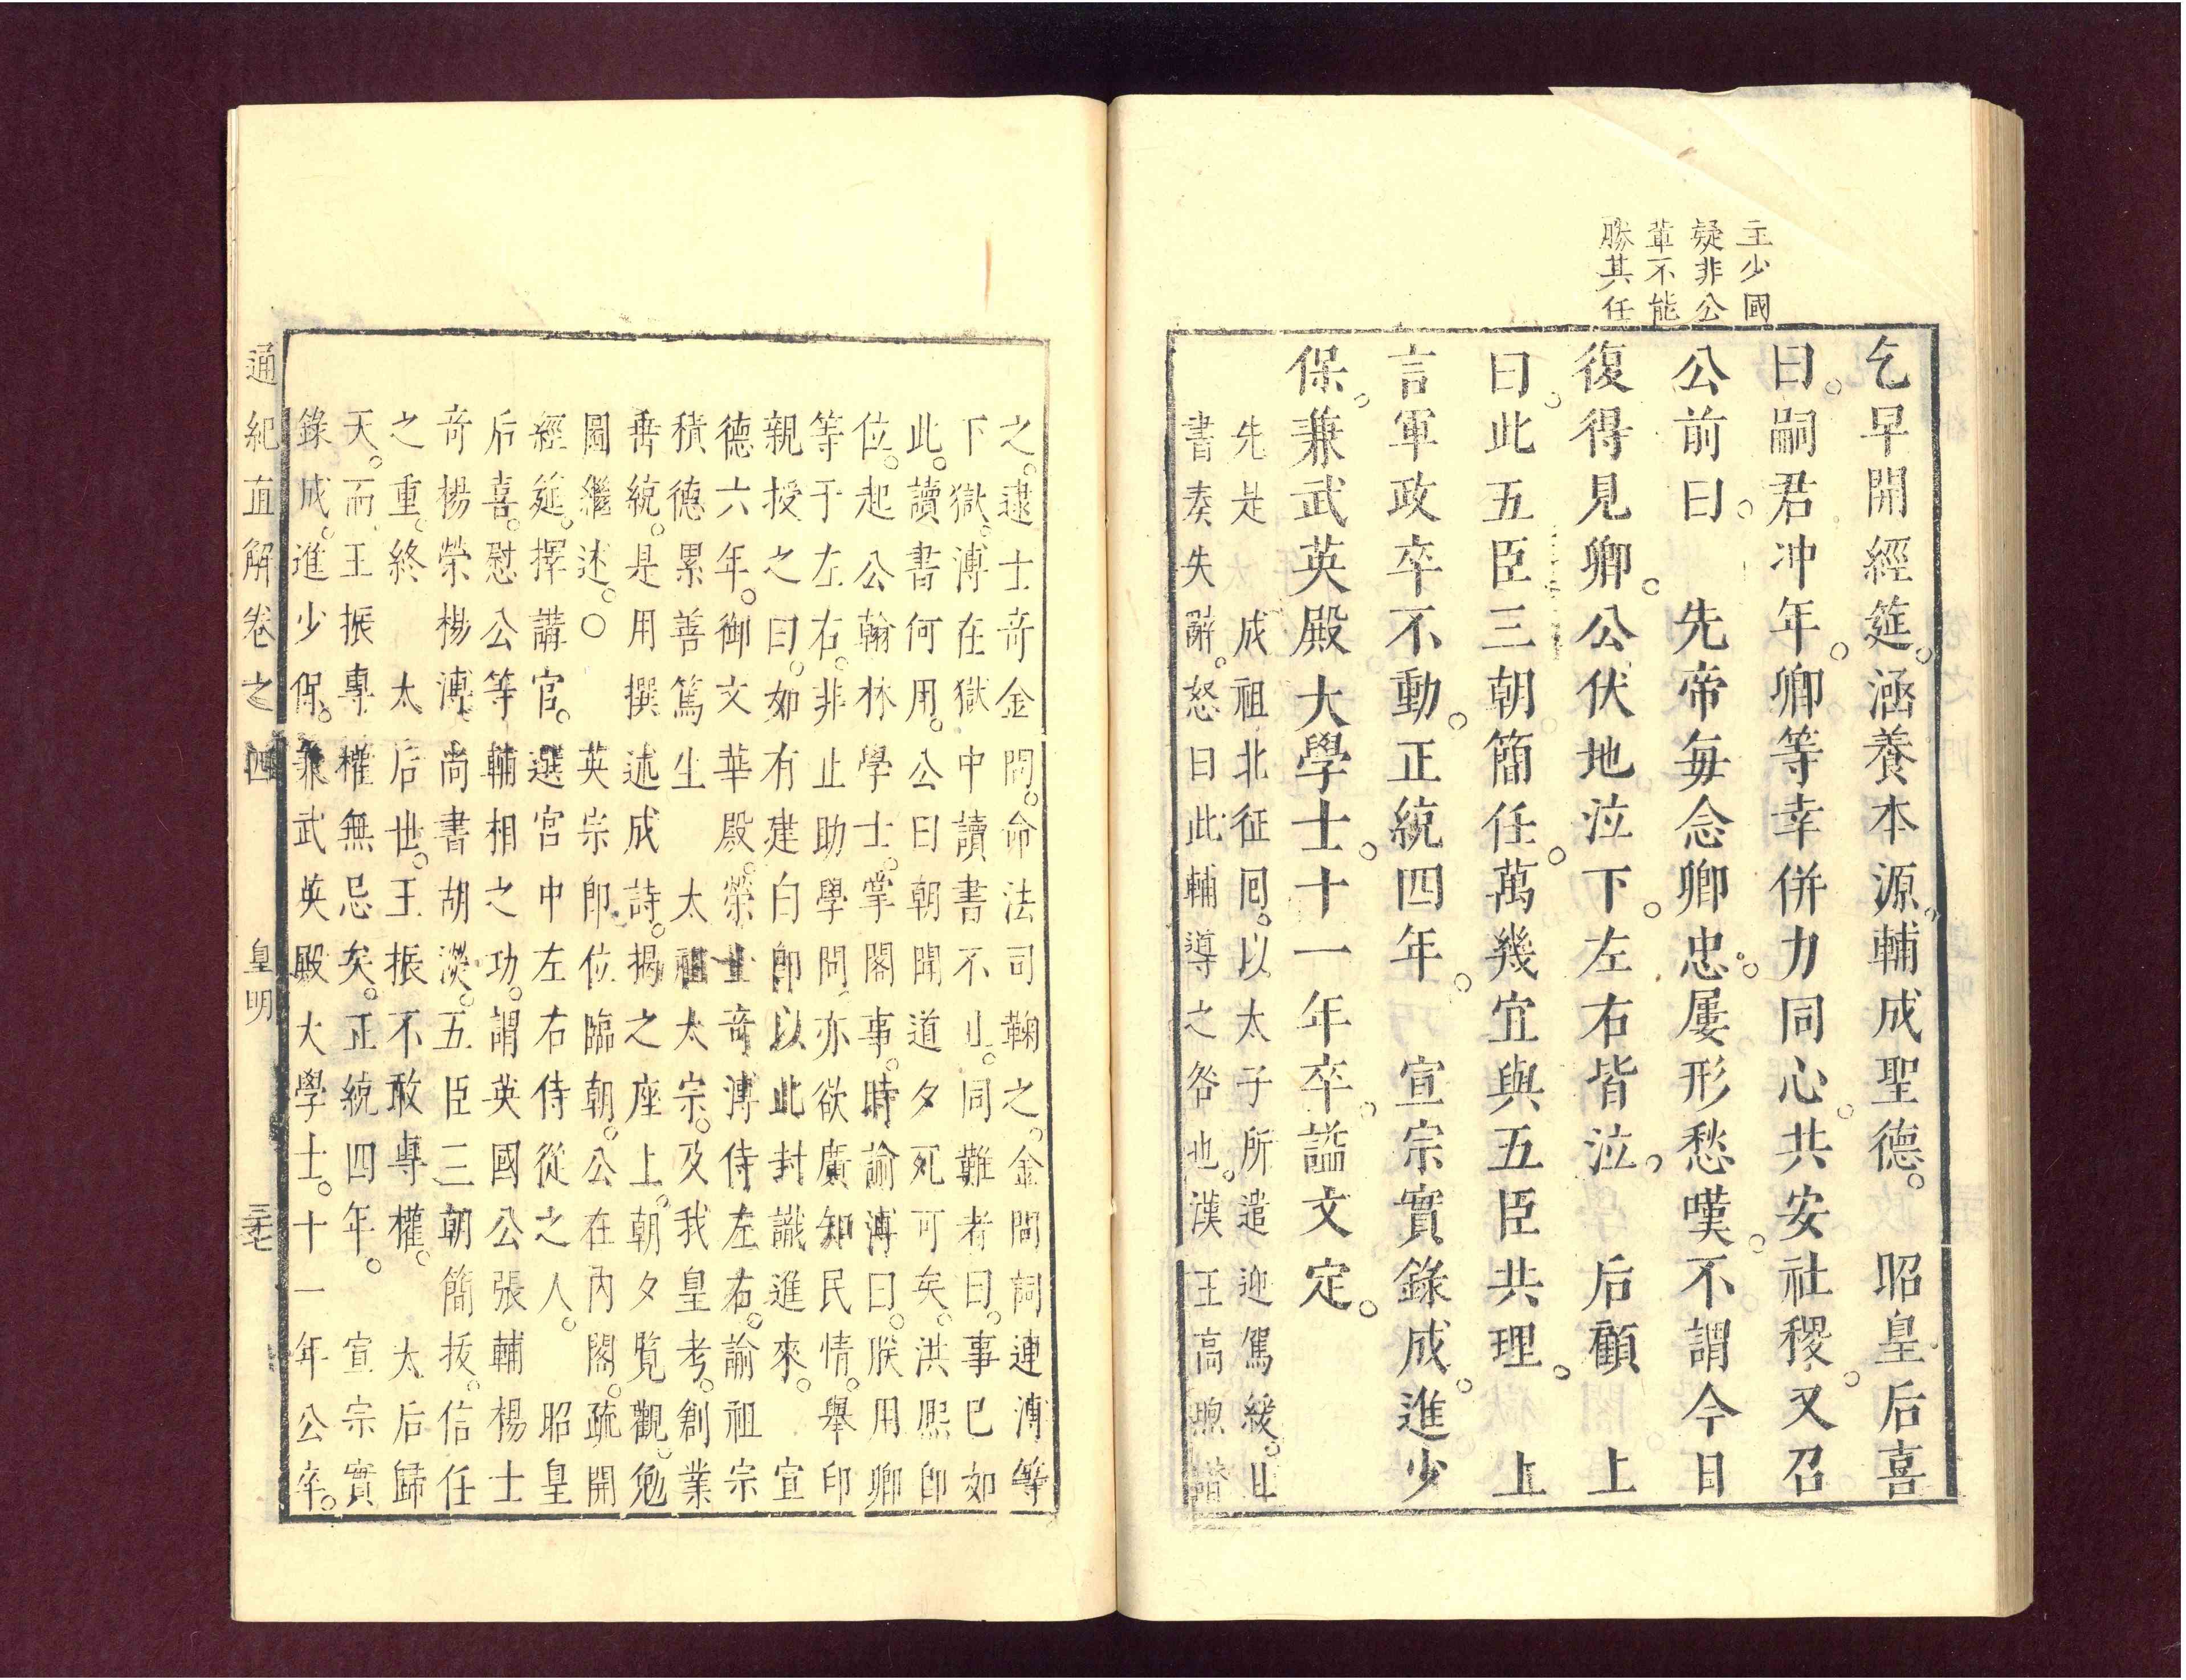 主少國
疑非公
軰不能
勝其任
乞早開經筵。涵養本源。輔成聖德。　昭皇后喜
曰。嗣君冲年。卿等幸併力同心。共安社稷。又召
公前曰。　先帝每念卿忠。屢形愁嘆。不謂今日
復得見卿。公伏地泣下。左右皆泣。　后顧　上
曰。此五臣三朝簡任。萬幾宜與五臣共理。　上
言軍政卒不動。正統四年。　宣宗實錄成。進少
保。兼武英殿大學士。十一年卒。謚文定。
先是　成祖北征囘。以太子所遣迎駕緩。且
書奏失辭。怒曰此輔導之咎也。漢王高煦譖
之。逮士奇金問。命法司鞠之。金問詞連溥等
下獄。溥在獄中讀書不止。同難者曰。事已如
此。讀書何用。公曰朝聞道夕死可矣。洪熙即
位。起公翰林學士。掌閣事。時諭溥曰。朕用卿
等于左右。非止助學問。亦欲廣知民情。舉印
親授之曰。如有建白即以此封識進來。　宣
德六年。御文華殿。榮士奇溥侍左右。諭祖宗
積德累善篤生　太祖太宗。及我皇考。創業
垂統。是用撰述成　詩。揭之座上。朝夕覧觀。勉
圖繼述。○　英宗即位臨朝。公在內閣。疏開
經筵。擇講官。選宮中左右侍從之人。　昭皇
后喜。慰公等輔相之功。謂英國公張輔楊士
奇楊榮楊溥尚書胡濙。五臣三朝簡拔。信任
之重。終　太后世。王振不敢專權。　太后歸
天。而王振專權無忌矣。正統四年。　宣宗實
錄成。進少保。兼武英殿大學士。十一年公卒。
通紀直解卷之四　皇明　三十七